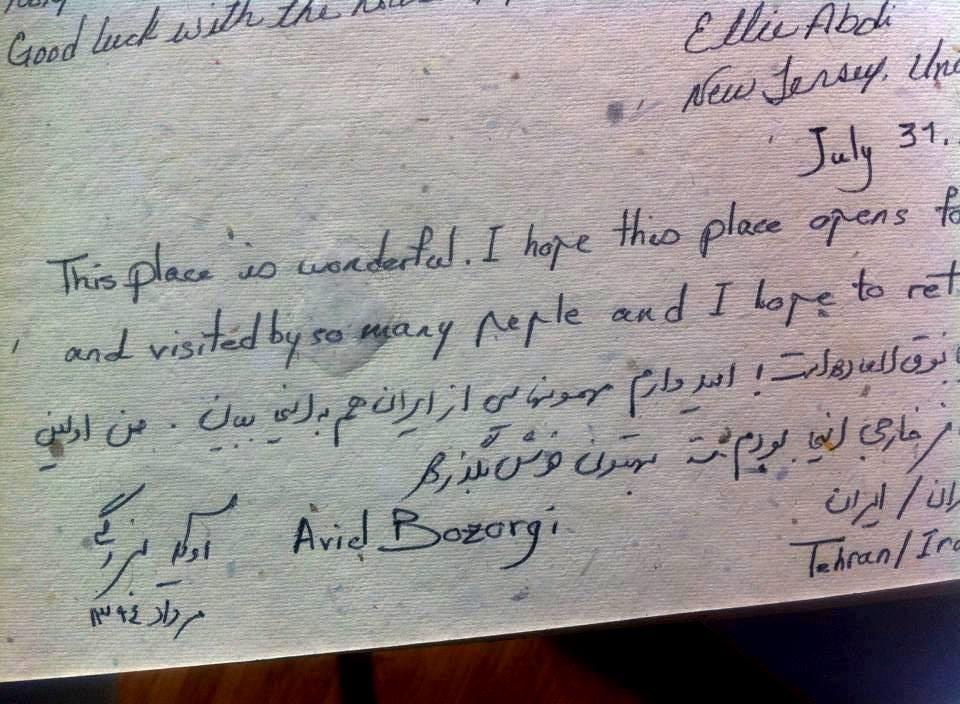 Good luck with the
Ellie Abdi
New Jersey. Uni
July 31.
This place is wonderful. I hope this place opens fo
and visited by so many people and I hope to ret
فوق العاده است! امیدوارم مهمونهایی از ایران هم به اینجا بیان. من اولین
خارجی اینجا بودم بهتون خوش بگذره
ران / ایران
بزرگی
Arid Bozorgi
Tehran/Ira
مرداد ۱۳۹٤